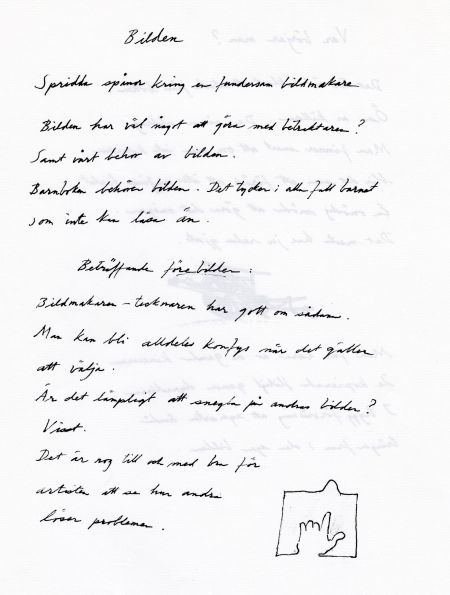 Bilden
Spridda spånor kring en fundersam bildmakare
Bilden har väl något att göra med betraktaren?
Samt vårt behov av bilden.
Barnboken behöver bilden. Det tycker i alla fall barnet
som inte kan läsa än.
Beträffande förebilder:
Bildmakaren - tecknaren har gott om sådana.
Man kan bli alldeles konfys när det gäller
att välja.
Är det lämpligt att snegla på andras bilder?
Visst.
Det är nog till och med bra för
artisten att se hur andra
löser problemen.